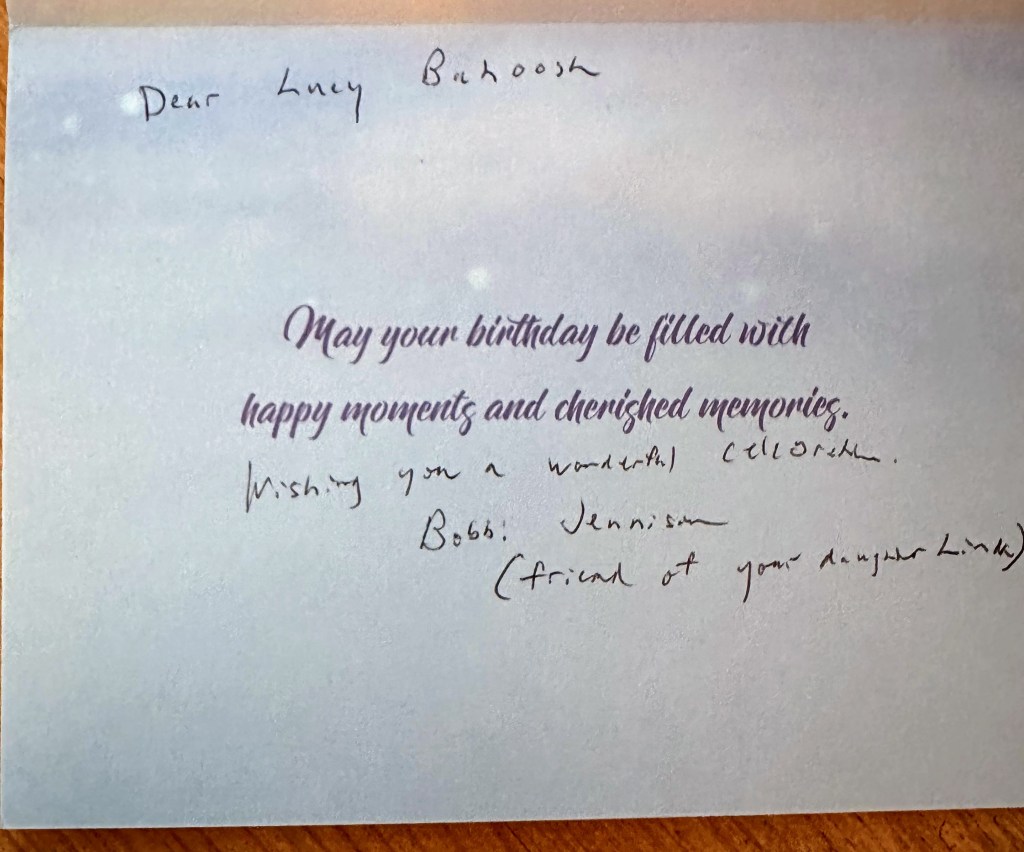 Dear Lucy Bahoosh
May your birthday be filled with
happy moments and cherished memories.
Wishing you a wonderful celebration.
Bobbi Jennison
(friend of your daughter Linda)